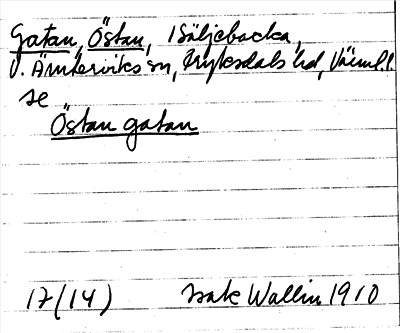 Gatan, Östan, i Säljebacka,
V. Ämterviks sn, Fryksdals hd, Värml. l.
se
Östan gatan
17(14) Isak Wallin 1910